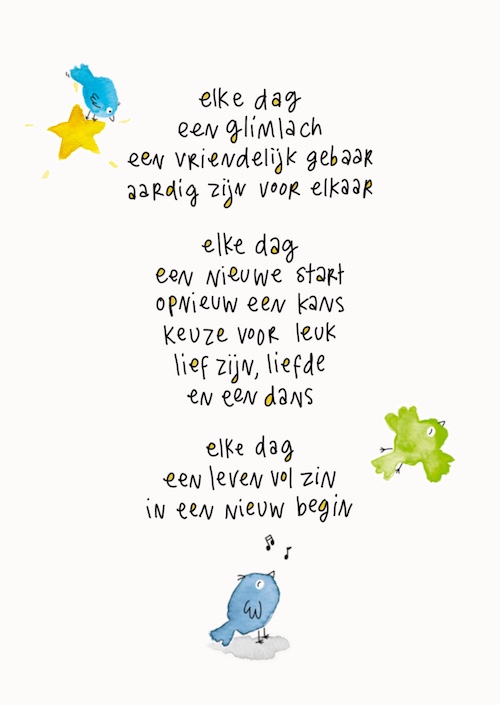 elke dag
een glimlach
een vriendelijk gebaar
aardig zijn voor elkaar
elke dag
een nieuwe start
opnieuw een kans
keuze voor leuk
lief zijn, liefde
en een dans
elke dag
een leven vol zin
in een nieuw begin